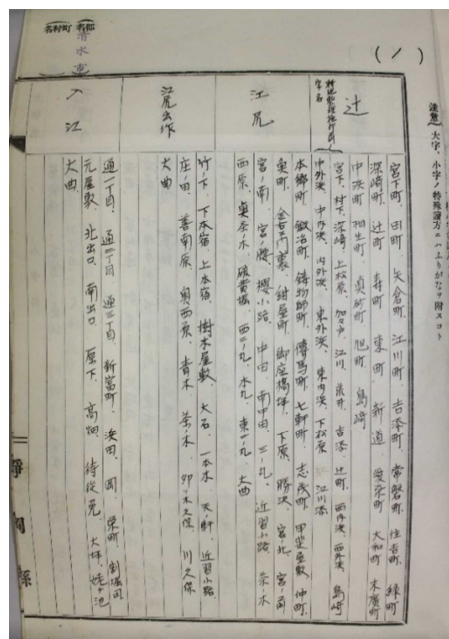 (1)
注意 大字、小字ノ特殊讀方ニハふりがなヲ附スコト
郡名 町村名
清水市
辻
宮下町、田町、矢倉町、江川町、吉添町、常磐町、住吉町、緑町
深崎町、辻町、寿町、東町、新道、愛染町、大和町、末廣町
中浜町、相生町、眞砂町、旭町、島崎
宮下、村下、深崎、上松原、加々み、江川、荒井、吉添、辻町、西内浜、西外浜、島崎
中外浜、中内浜、内外浜、東外浜、東内浜、下松原、江川添
江尻
本郷町、鍛冶町、鋳物師町、傳馬町、七軒町、志茂町、甲斐屋敷、仲町
魚町、紺屋町、御座橋坪、下原、勝次、宮ノ北、宮ノ前
宮ノ南、宮ノ腰、櫻小路、中田、南中田、三ノ丸、近習小路、茶ノ木
西原、奥茶ノ木、硫黄場、西二ノ丸、本丸、東二ノ丸、大曲
江尻出作
竹ノ下、下本宿、上本宿、樹木屋敷、大石、一本木、天軒、近習小路
庄ノ田、善南原、奥西原、青木、茶ノ木、卯ノ木久保、川久保
大曲
入江
通一丁目、通二丁目、通三丁目、新富町、浜田、岡、栄町
元屋敷、北出口、南出口、原下、高畑、待従免、大坪、姥ヶ池
大曲
靜岡縣